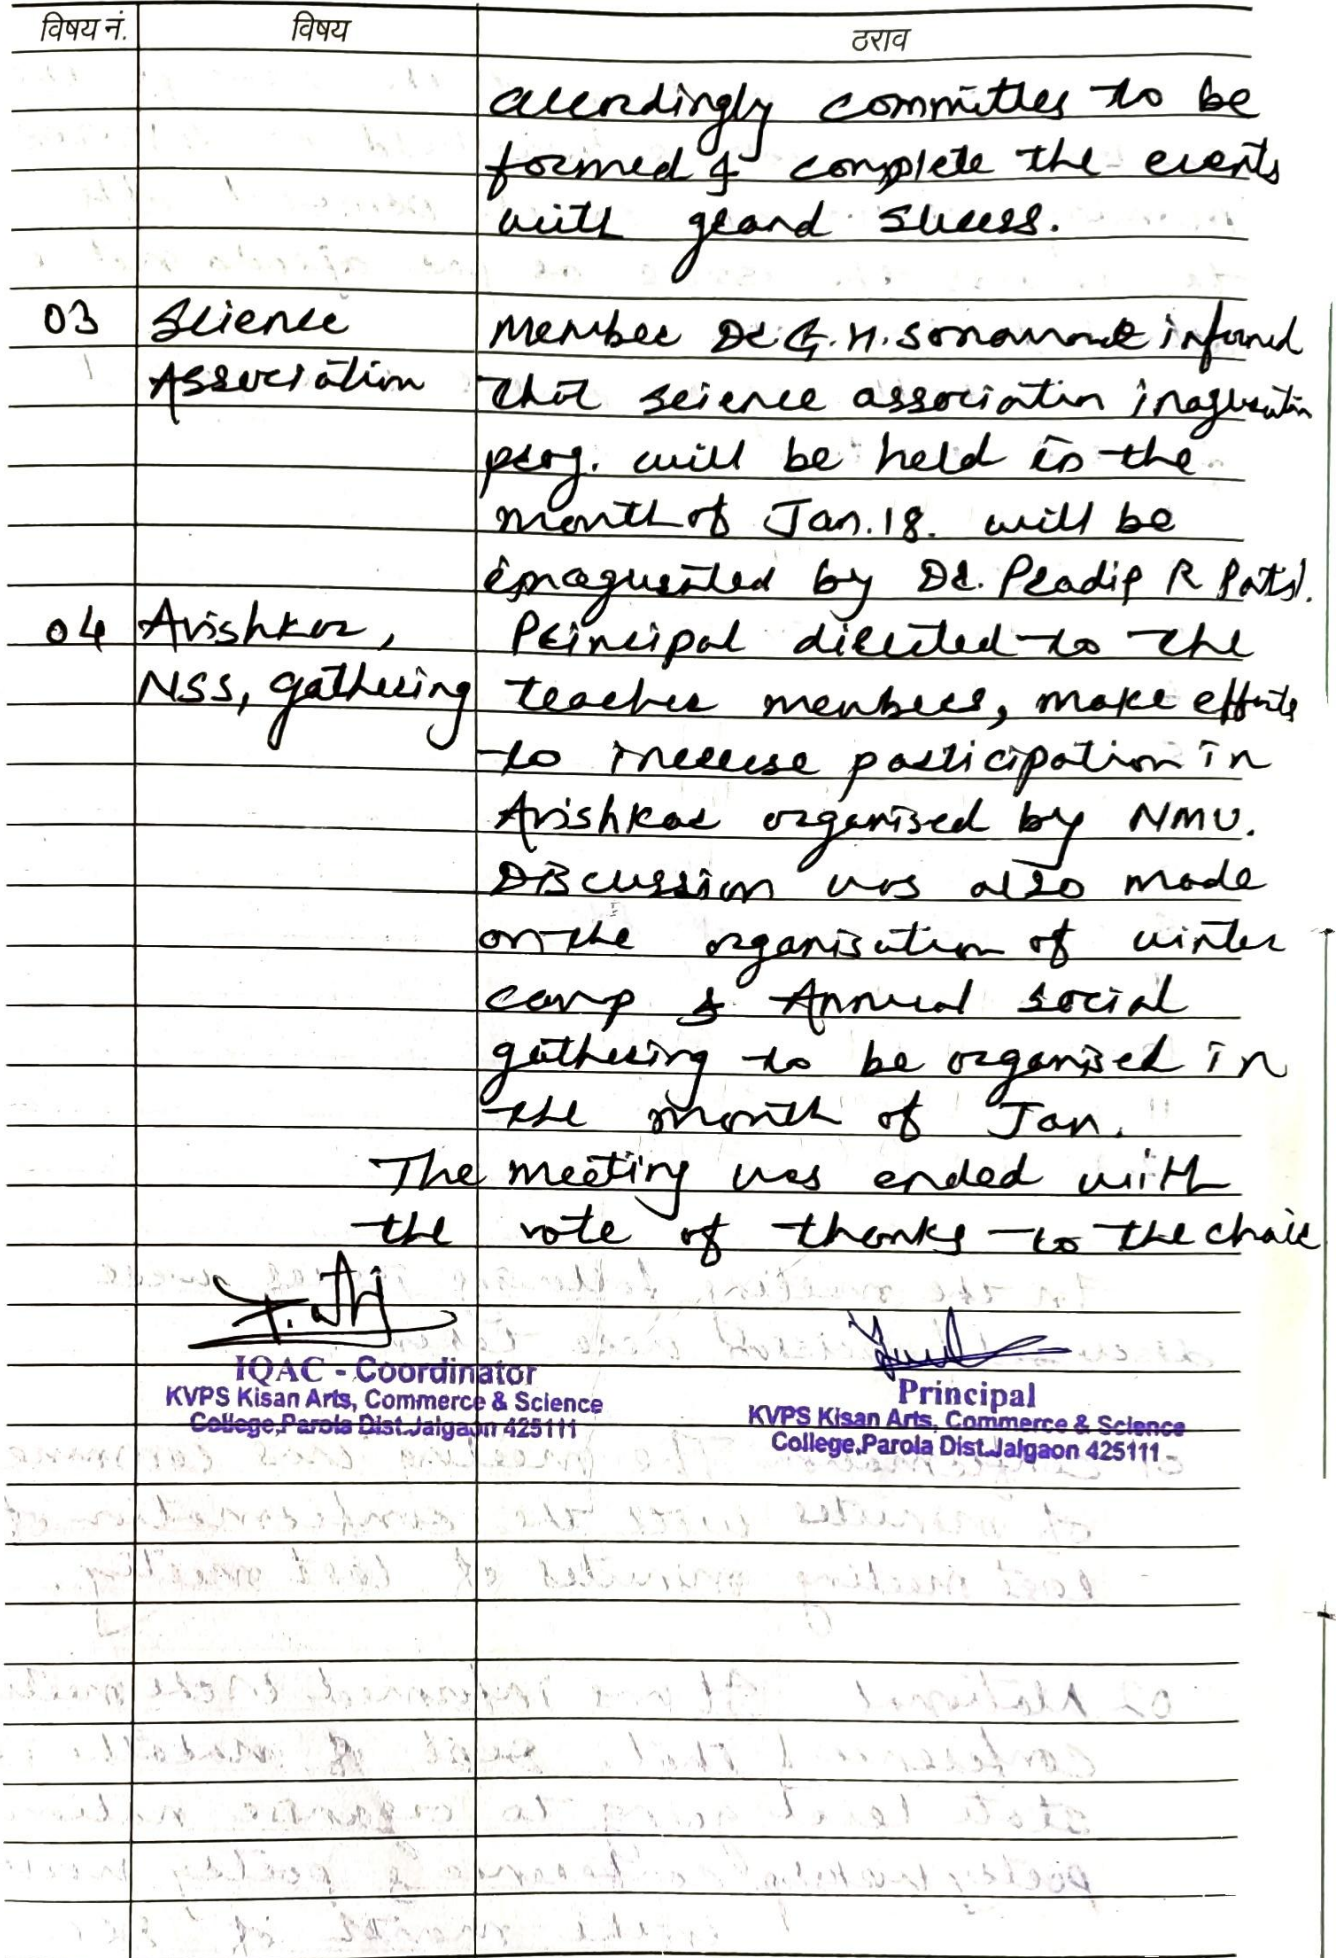 विषय नं. विषय ठराव
accordingly committes to be
formed & complete the events
with grand success.
03 Science Member Dr. G. H. Sonawane informed
Association that science association inaguration
prog. will be held in the
month of Jan. 18. will be
inagurated by Dr. Pradip R Patil.
04 Avishkar, Principal directed to the
NSS, gathering teacher members, make efforts
to increase participation in
Avishkar organised by NMU.
Discussion was also made
on the organisation of winter
camp & Annual social
gathering to be organised in
the month of Jan.
The meeting was ended with
the vote of thanks to the chair
IQAC - Coordinator
KVPS Kisan Arts, Commerce & Science
College,Parola Dist.Jalgaon 425111
Principal
KVPS Kisan Arts, Commerce & Science
College,Parola Dist.Jalgaon 425111